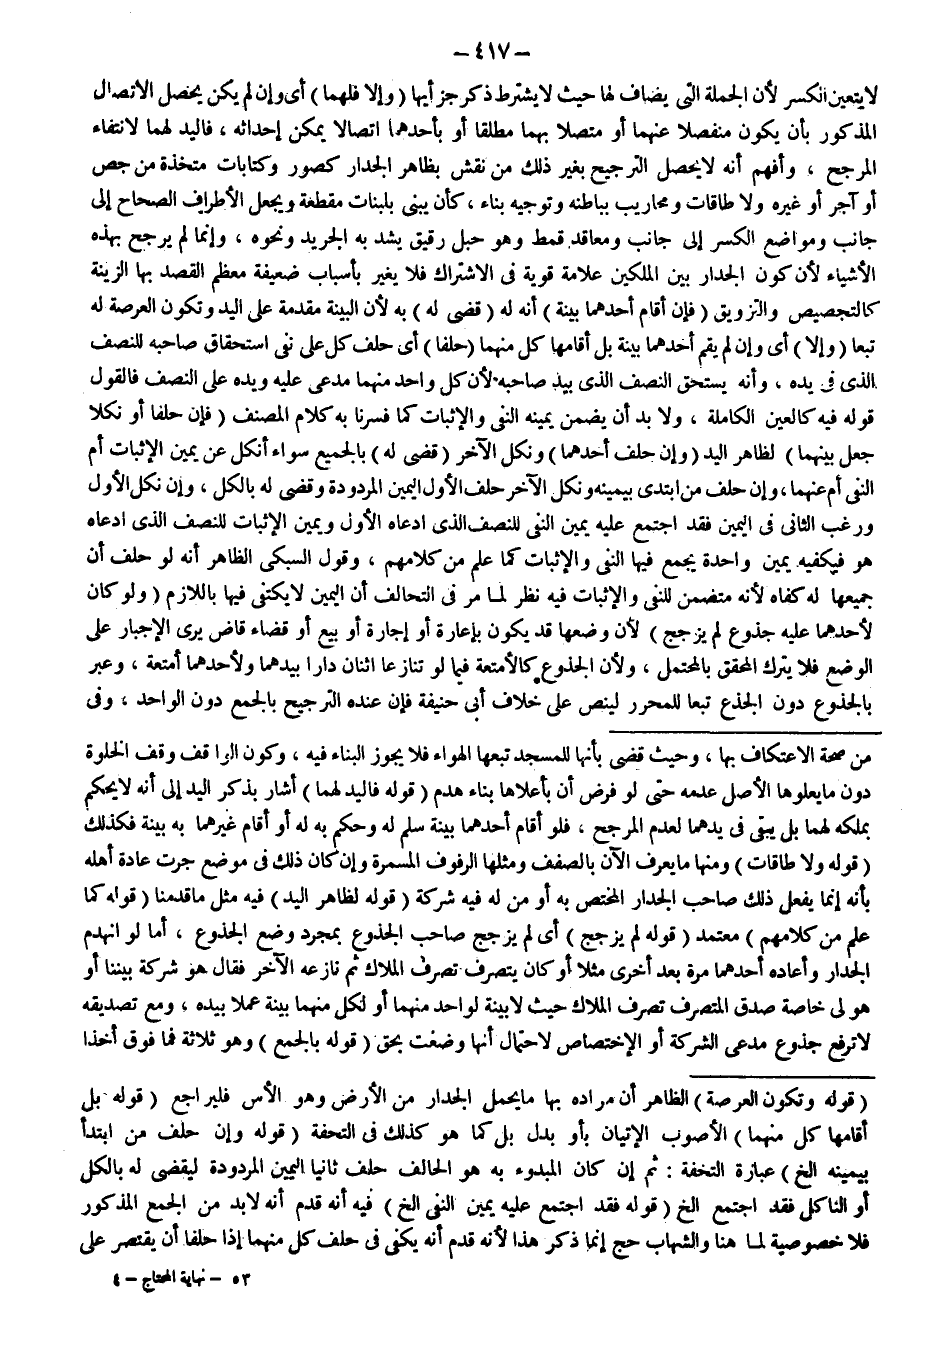 – ٤١٧ –
لايتعين الكسر لأن الجملة التى يضاف لها حيث لايشترط ذكر جزأيها ( وإلا فلهما ) أى وإن لم يكن يحصل الاتصال
المذكور بأن يكون منفصلا عنهما أو متصلا بهما مطلقا أو بأحدهما اتصالا يمكن إحداثه ، فاليد لهما لانتفاء
المرجح ، وأفهم أنه لايحصل الترجيح بغير ذلك من نقش بظاهر الجدار كصور وكتابات متخذة من جص
أو آجر أو غيره ولا طاقات ومحاريب بباطنه وتوجيه بناء ، كأن يبنى بلبنات مقطعة ويجعل الأطراف الصحاح إلى
جانب ومواضع الكسر إلى جانب ومعاقد قمط وهو حبل رقيق يشد به الجريد ونحوه ، وإنما لم يرجح بهذه
الأشياء لأن كون الجدار بين الملكين علامة قوية فى الاشتراك فلا يغير بأسباب ضعيفة معظم القصد بها الزينة
كالتجصيص والتزويق ( فإن أقام أحدهما بينة ) أنه له ( قضى له ) به لأن البينة مقدمة على اليد وتكون العرصة له
تبعا ( وإلا ) أى وإن لم يقم أحدهما بينة بل أقامها كل منهما ( حلفا ) أى حلف كل على نفى استحقاق صاحبه للنصف
الذى فى يده ، وأنه يستحق النصف الذى بيد صاحبه لأن كل واحد منهما مدعى عليه ويده على النصف فالقول
قوله فيه كالعين الكاملة ، ولا بد أن يضمن يمينه النفى والإثبات كما فسرنا به كلام المصنف ( فإن حلفا أو نكلا
جعل بينهما ) لظاهر اليد ( وإن حلف أحدهما ) ونكل الآخر ( قضى له ) بالجميع سواء أنكل عن يمين الإثبات أم
النفى أم عنهما ، وإن حلف من ابتدى بيمينه ونكل الآخر حلف الأول اليمين المردودة وقضى له بالكل ، وإن نكل الأول
ورغب الثانى فى اليمين فقد اجتمع عليه يمين النفى للنصف الذى ادعاه الأول ويمين الإثبات للنصف الذى ادعاه
هو فيكفيه يمين واحدة يجمع فيها النفى والإثبات كما علم من كلامهم ، وقول السبكى الظاهر أنه لو حلف أن
جميعها له كفاه لأنه متضمن للنفى والإثبات فيه نظر لما مر فى التحالف أن اليمين لايكتفى فيها باللازم ( ولو كان
لأحدهما عليه جذوع لم يرجح ) لأن وضعها قد يكون بإعارة أو إجارة أو بيع أو قضاء قاض يرى الإجبار على
الوضع فلا يترك المحقق بالمحتمل ، ولأن الجذوع كالأمتعة فيما لو تنازعا اثنان دارا بيدهما ولأحدهما أمتعة ، وعبر
بالجذوع دون الجذع تبعا للمحرر لينص على خلاف أبى حنيفة فإن عنده الترجيح بالجمع دون الواحد ، وفى
من صحة الاعتكاف بها ، وحيث قضى بأنها للمسجد تبعها الهواء فلا يجوز البناء فيه ، وكون الواقف وقف الخلوة
دون مايعلوها الأصل عدمه حتى لو فرض أن بأعلاها بناء هدم ( قوله فاليد لهما ) أشار بذكر اليد إلى أنه لايحكم
بملكه لهما بل يبقى فى يدهما لعدم المرجح ، فلو أقام أحدهما بينة سلم له وحكم به له أو أقام غيرهما به بينة فكذلك
( قوله ولا طاقات ) ومنها مايعرف الآن بالصفف ومثلها الرفوف المسمرة وإن كان ذلك فى موضع جرت عادة أهله
بأنه إنما يفعل ذلك صاحب الجدار المختص به أو من له فيه شركة ( قوله لظاهر اليد ) فيه مثل ماقدمنا ( قوله كما
علم من كلامهم ) معتمد ( قوله لم يرجح ) أى لم يرجح صاحب الجذوع بمجرد وضع الجذوع ، أما لو انهدم
الجدار وأعاده أحدهما مرة بعد أخرى مثلا أو كان يتصرف تصرف الملاك ثم نازعه الآخر فقال هو شركة بيننا أو
هو لى خاصة صدق المتصرف تصرف الملاك حيث لابينة لواحد منهما أو لكل منهما بينة عملا بيده ، ومع تصديقه
لاترفع جذوع مدعى الشركة أو الإختصاص لاحتمال أنها وضعت بحق ( قوله بالجمع ) وهو ثلاثة فما فوق أخذا
( قوله وتكون العرصة ) الظاهر أن مراده بها مايحمل الجدار من الأرض وهو الأس فليراجع ( قوله بل
أقامها كل منهما ) الأصوب الإتيان بأو بدل بل كما هو كذلك فى التحفة ( قوله وإن حلف من ابتدأ
بيمينه الخ ) عبارة التحفة : ثم إن كان المبدوء به هو الحالف حلف ثانيا اليمين المردودة ليقضى له بالكل
أو الناكل فقد اجتمع الخ ( قوله فقد اجتمع عليه يمين النفى الخ ) فيه أنه قدم أنه لابد من الجمع المذكور
فلا خصوصية لما هنا والشهاب حج إنما ذكر هذا لأنه قدم أنه يكفى فى حلف كل منهما إذا حلفا أن يقتصر على
٥٣ – نهاية المحتاج – ٤